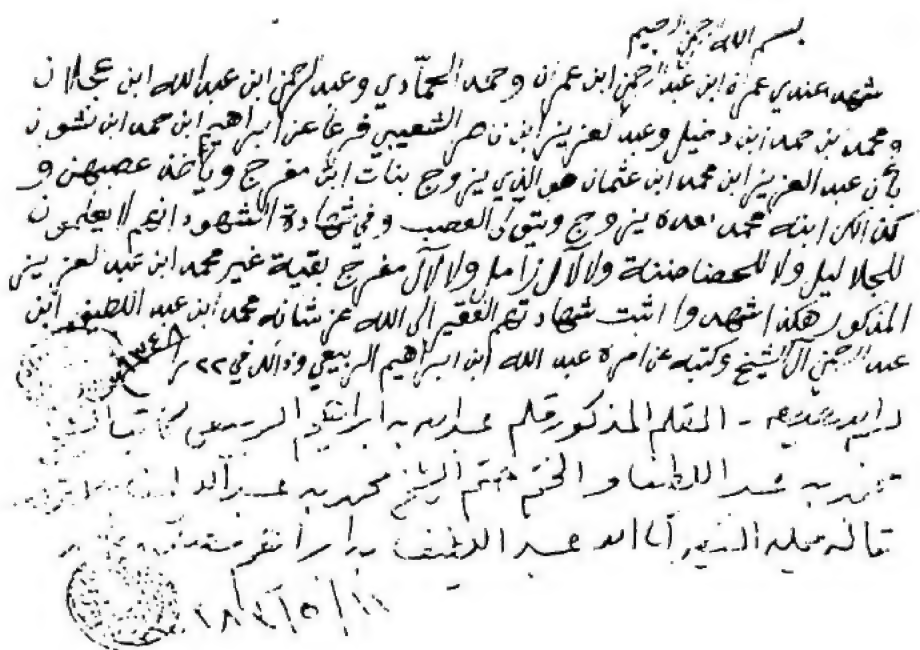 بسم الله الرحمن الرحيم
شهد عندي عمران ابن عبد الرحمن ابن عمران وحمد الحمادي وعبد الرحمن ابن عبد الله ابن عجلان
ومحمد ابن حمد ابن دخيل وعبد العزيز ابن ناصر الشعيبي فرعا عن ابراهيم ابن حمد ابن نشوان
بأن عبد العزيز ابن محمد ابن عثمان هو الذي يزوج بنات ابن مفرج ويأخذ عصبهن و
كذالك ابنه محمد بعده يزوج ويتولى العصب وفي شهادة الشهود انهم لا يعلمون
للجلاليل ولا للحضاضنة ولا لآل زامل ولا لآل مفرج بقية غير محمد ابن عبد العزيز
المذكور هكذا شهدوا واثبت شهادتهم الفقير الى الله عز شانه محمد ابن عبد اللطيف ابن
عبد الرحمن آل الشيخ وكتبه عن امره عبد الله ابن ابراهيم الربيعي وذالك في ٢٢ ١٣٤٨
القلم المذكور قلم عبد الله بن ابراهيم الربيعي كاتب
بن عبد اللطيف والختم ختم الشيخ محمد بن عبد اللطيف
قاله عبد اللطيف بن ابراهيم